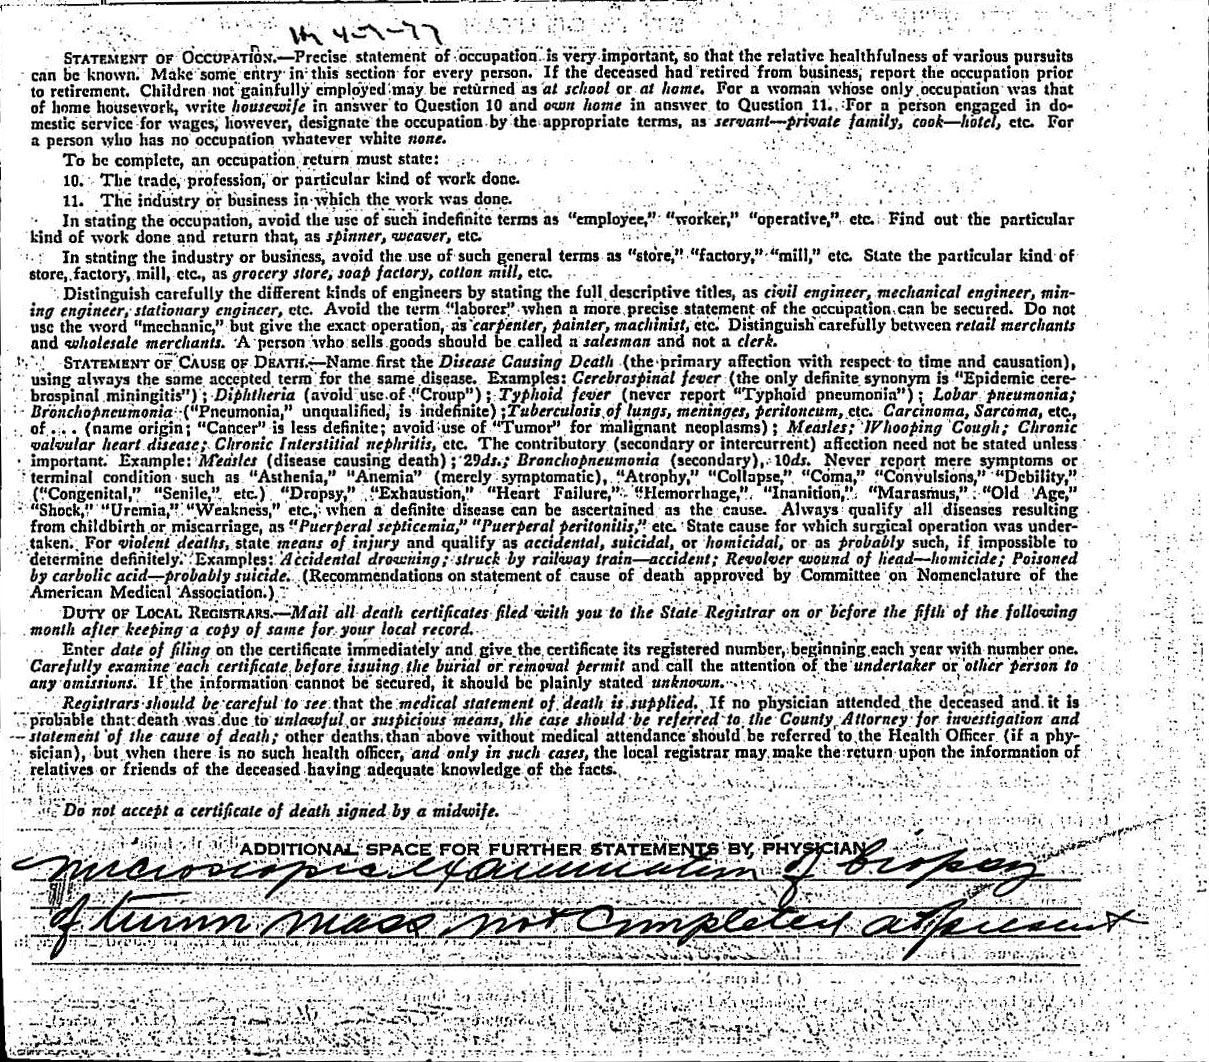 4-7-77
STATEMENT OF OCCUPATION.—Precise statement of occupation is very important, so that the relative healthfulness of various pursuits
can be known. Make some entry in this section for every person. If the deceased had retired from business, report the occupation prior
to retirement. Children not gainfully employed may be returned as at school or at home. For a woman whose only occupation was that
of home housework, write housewife in answer to Question 10 and own home in answer to Question 11. For a person engaged in do-
mestic service for wages, however, designate the occupation by the appropriate terms, as servant—private family, cook—hotel, etc. For
a person who has no occupation whatever white none.
To be complete, an occupation return must state:
10. The trade, profession, or particular kind of work done.
11. The industry or business in which the work was done.
In stating the occupation, avoid the use of such indefinite terms as "employee," "worker," "operative," etc. Find out the particular
kind of work done and return that, as spinner, weaver, etc.
In stating the industry or business, avoid the use of such general terms as "store," "factory," "mill," etc. State the particular kind of
store, factory, mill, etc., as grocery store, soap factory, cotton mill, etc.
Distinguish carefully the different kinds of engineers by stating the full descriptive titles, as civil engineer, mechanical engineer, min-
ing engineer, stationary engineer, etc. Avoid the term "laborer" when a more precise statement of the occupation can be secured. Do not
use the word "mechanic," but give the exact operation, as carpenter, painter, machinist, etc. Distinguish carefully between retail merchants
and wholesale merchants. A person who sells goods should be called a salesman and not a clerk.
STATEMENT OF CAUSE OF DEATH.—Name first the Disease Causing Death (the primary affection with respect to time and causation),
using always the same accepted term for the same disease. Examples: Cerebrospinal fever (the only definite synonym is "Epidemic cere-
brospinal miningitis"); Diphtheria (avoid use of "Croup"); Typhoid fever (never report "Typhoid pneumonia"); Lobar pneumonia;
Bronchopneumonia ("Pneumonia," unqualified, is indefinite); Tuberculosis of lungs, meninges, peritoneum, etc. Carcinoma, Sarcoma, etc.,
of ... (name origin; "Cancer" is less definite; avoid use of "Tumor" for malignant neoplasms); Measles; Whooping Cough; Chronic
valvular heart disease; Chronic Interstitial nephritis, etc. The contributory (secondary or intercurrent) affection need not be stated unless
important. Example: Measles (disease causing death); 29ds.; Bronchopneumonia (secondary), 10ds. Never report mere symptoms or
terminal condition such as "Asthenia," "Anemia" (merely symptomatic), "Atrophy," "Collapse," "Coma," "Convulsions," "Debility,"
("Congenital," "Senile," etc.) "Dropsy," "Exhaustion," "Heart Failure," "Hemorrhage," "Inanition," "Marasmus," "Old Age,"
"Shock," "Uremia," "Weakness," etc., when a definite disease can be ascertained as the cause. Always qualify all diseases resulting
from childbirth or miscarriage, as "Puerperal septicemia," "Puerperal peritonitis," etc. State cause for which surgical operation was under-
taken. For violent deaths, state means of injury and qualify as accidental, suicidal, or homicidal, or as probably such, if impossible to
determine definitely. Examples: Accidental drowning; struck by railway train—accident; Revolver wound of head—homicide; Poisoned
by carbolic acid—probably suicide. (Recommendations on statement of cause of death approved by Committee on Nomenclature of the
American Medical Association.)
DUTY OF LOCAL REGISTRARS.—Mail all death certificates filed with you to the State Registrar on or before the fifth of the following
month after keeping a copy of same for your local record.
Enter date of filing on the certificate immediately and give the certificate its registered number, beginning each year with number one.
Carefully examine each certificate before issuing the burial or removal permit and call the attention of the undertaker or other person to
any omissions. If the information cannot be secured, it should be plainly stated unknown.
Registrars should be careful to see that the medical statement of death is supplied. If no physician attended the deceased and it is
probable that death was due to unlawful or suspicious means, the case should be referred to the County Attorney for investigation and
statement of the cause of death; other deaths than above without medical attendance should be referred to the Health Officer (if a phy-
sician), but when there is no such health officer, and only in such cases, the local registrar may make the return upon the information of
relatives or friends of the deceased having adequate knowledge of the facts.
Do not accept a certificate of death signed by a midwife.
ADDITIONAL SPACE FOR FURTHER STATEMENTS BY PHYSICIAN
Microscopic examination of biopsy
of tumor mass not completed at present